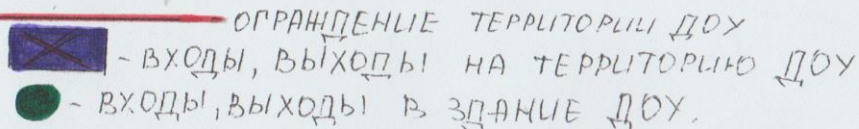 ОГРАЖДЕНИЕ ТЕРРИТОРИИ ДОУ
- ВХОДЫ, ВЫХОДЫ НА ТЕРРИТОРИЮ ДОУ
- ВХОДЫ, ВЫХОДЫ В ЗДАНИЕ ДОУ.